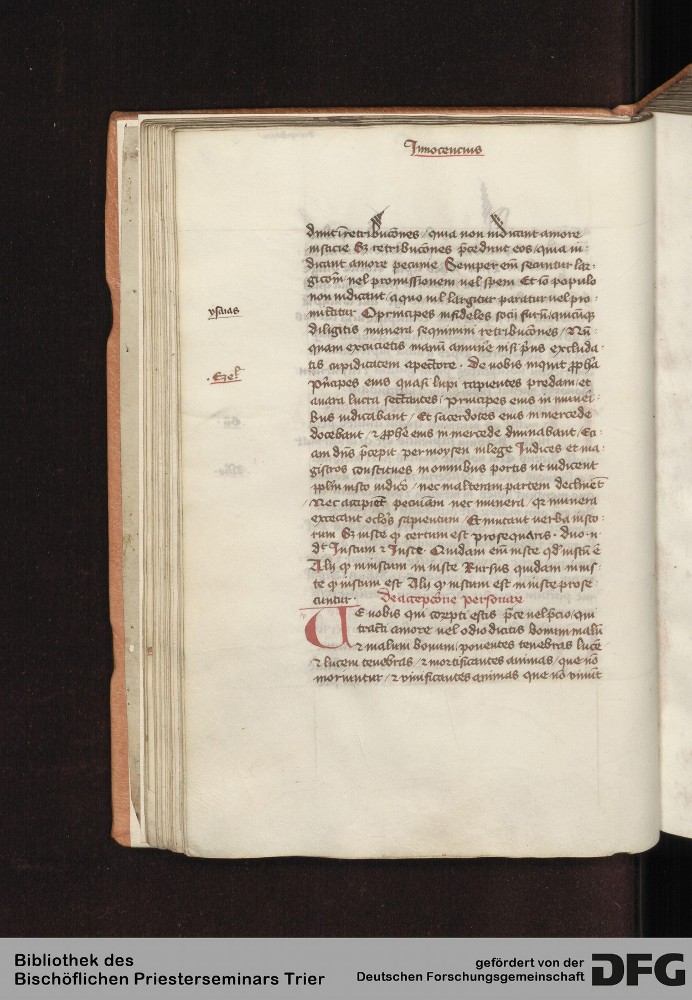 Innocencius
retribucōnes / quia non iudicant amore
iusticie Sʒ retribucōnes p̄cedunt eos / quia iu⸗
dicant amore pecunie Semper em̄ secuntur lar⸗
gicōm̄ uel promissionem uel spem Et iō populo
non iudicant / a quo nil largitur paratur uel pro⸗
mittatur O principes infideles socii furū / quicūqʒ
diligitis munera sequimini retribucōnes / Nū⸗
ysaias
quam excucietis manū a munere nisi pri̾us excluda⸗
tis cupiditatem a pectore . De uobis inquit ꝓpha
.Ezel̄
Pn̄cipes eius quasi lupi rapientes predam / et
auara lucra sectantes / principes eius in muneri⸗
bus iudicabant / Et sacerdotes eius in mercede
docebant / ⁊ ꝓphē eius in mercede diuinabant / Eci⸗
am dn̄s p̄cepit per moysen in lege Iudices et ma⸗
gistros constitues in omnibus portis ut iudicent
pplm̄ iusto iudicō / nec in alteram partem declinet
/ Nec accipiet pecuniam nec munera / qʒ munera
excecant oclōs sapientum / Et mutant uerba iusto⸗
rum Sʒ iuste qđ certum est prosequaris . duo n̄
dt̄ Iustum ⁊ Iuste Quidam em̄ iuste qđ iustū ē
Alij qđ iniustum iniuste Rursus quidam inius⸗
te qđ iustum est Alij qđ iniustum est iuste prose⸗
cuntur . De accepcōne personare
Ve uobis qui corrupti estis p̄ce uel p̄cio / qui
tracti amore uel odio dicitis bonum malū
⁊ malum bonum / ponentes tenebras lucē
⁊ lucem tenebras / ⁊ mortificantes animas / que nō
moriuntur / ⁊ viuificantes animas que nō viuūt
Bibliothek des
Bischöflichen Priesterseminars Trier
gefördert von der
Deutschen Forschungsgemeinschaft
DFG